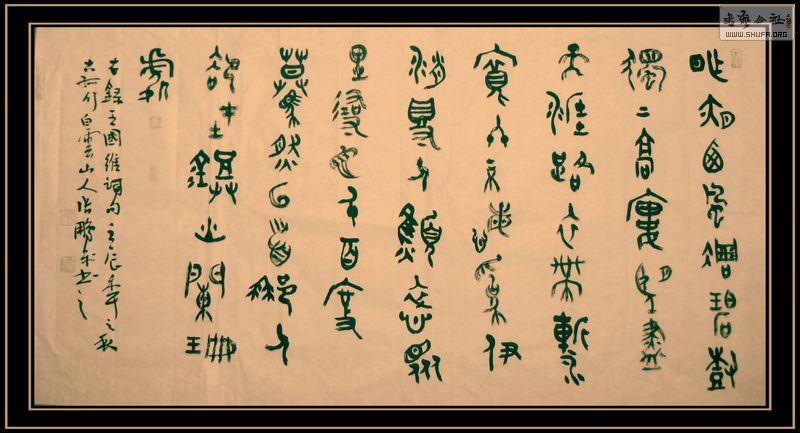 昨夜西風凋碧樹
獨上高樓望盡
天涯路衣帶漸
寬終不悔為伊
消得人憔悴眾
里尋他千百度
驀然回首那人
卻在燈火闌珊
處
右錄王國維詞句之秋
白雲山人鵬書之
书艺公社
WWW.SHUFA.ORG